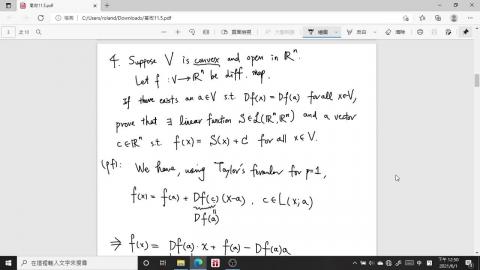 幕府11.5.pdf
C:/Users/roland/Downloads/幕府11.5.pdf
4. Suppose V is convex and open in ℝⁿ.
Let f : V→ℝⁿ be diff. map.
If there exists an a∈V s.t. Df(x) = Df(a) for all x∈V,
prove that ∃ linear function S∈ℒ(ℝⁿ,ℝⁿ) and a vector
c∈ℝⁿ s.t. f(x) = S(x) + c for all x∈V.
(pf) : We have, using Taylor's formular for p=1,
f(x) = f(a) + Df(c) (x-a) , c∈L(x;a)
Df(a)
⇒ f(x) = Df(a)·x + f(a) - Df(a)a
在這裡輸入文字來搜尋
下午 12:50
2021/6/1